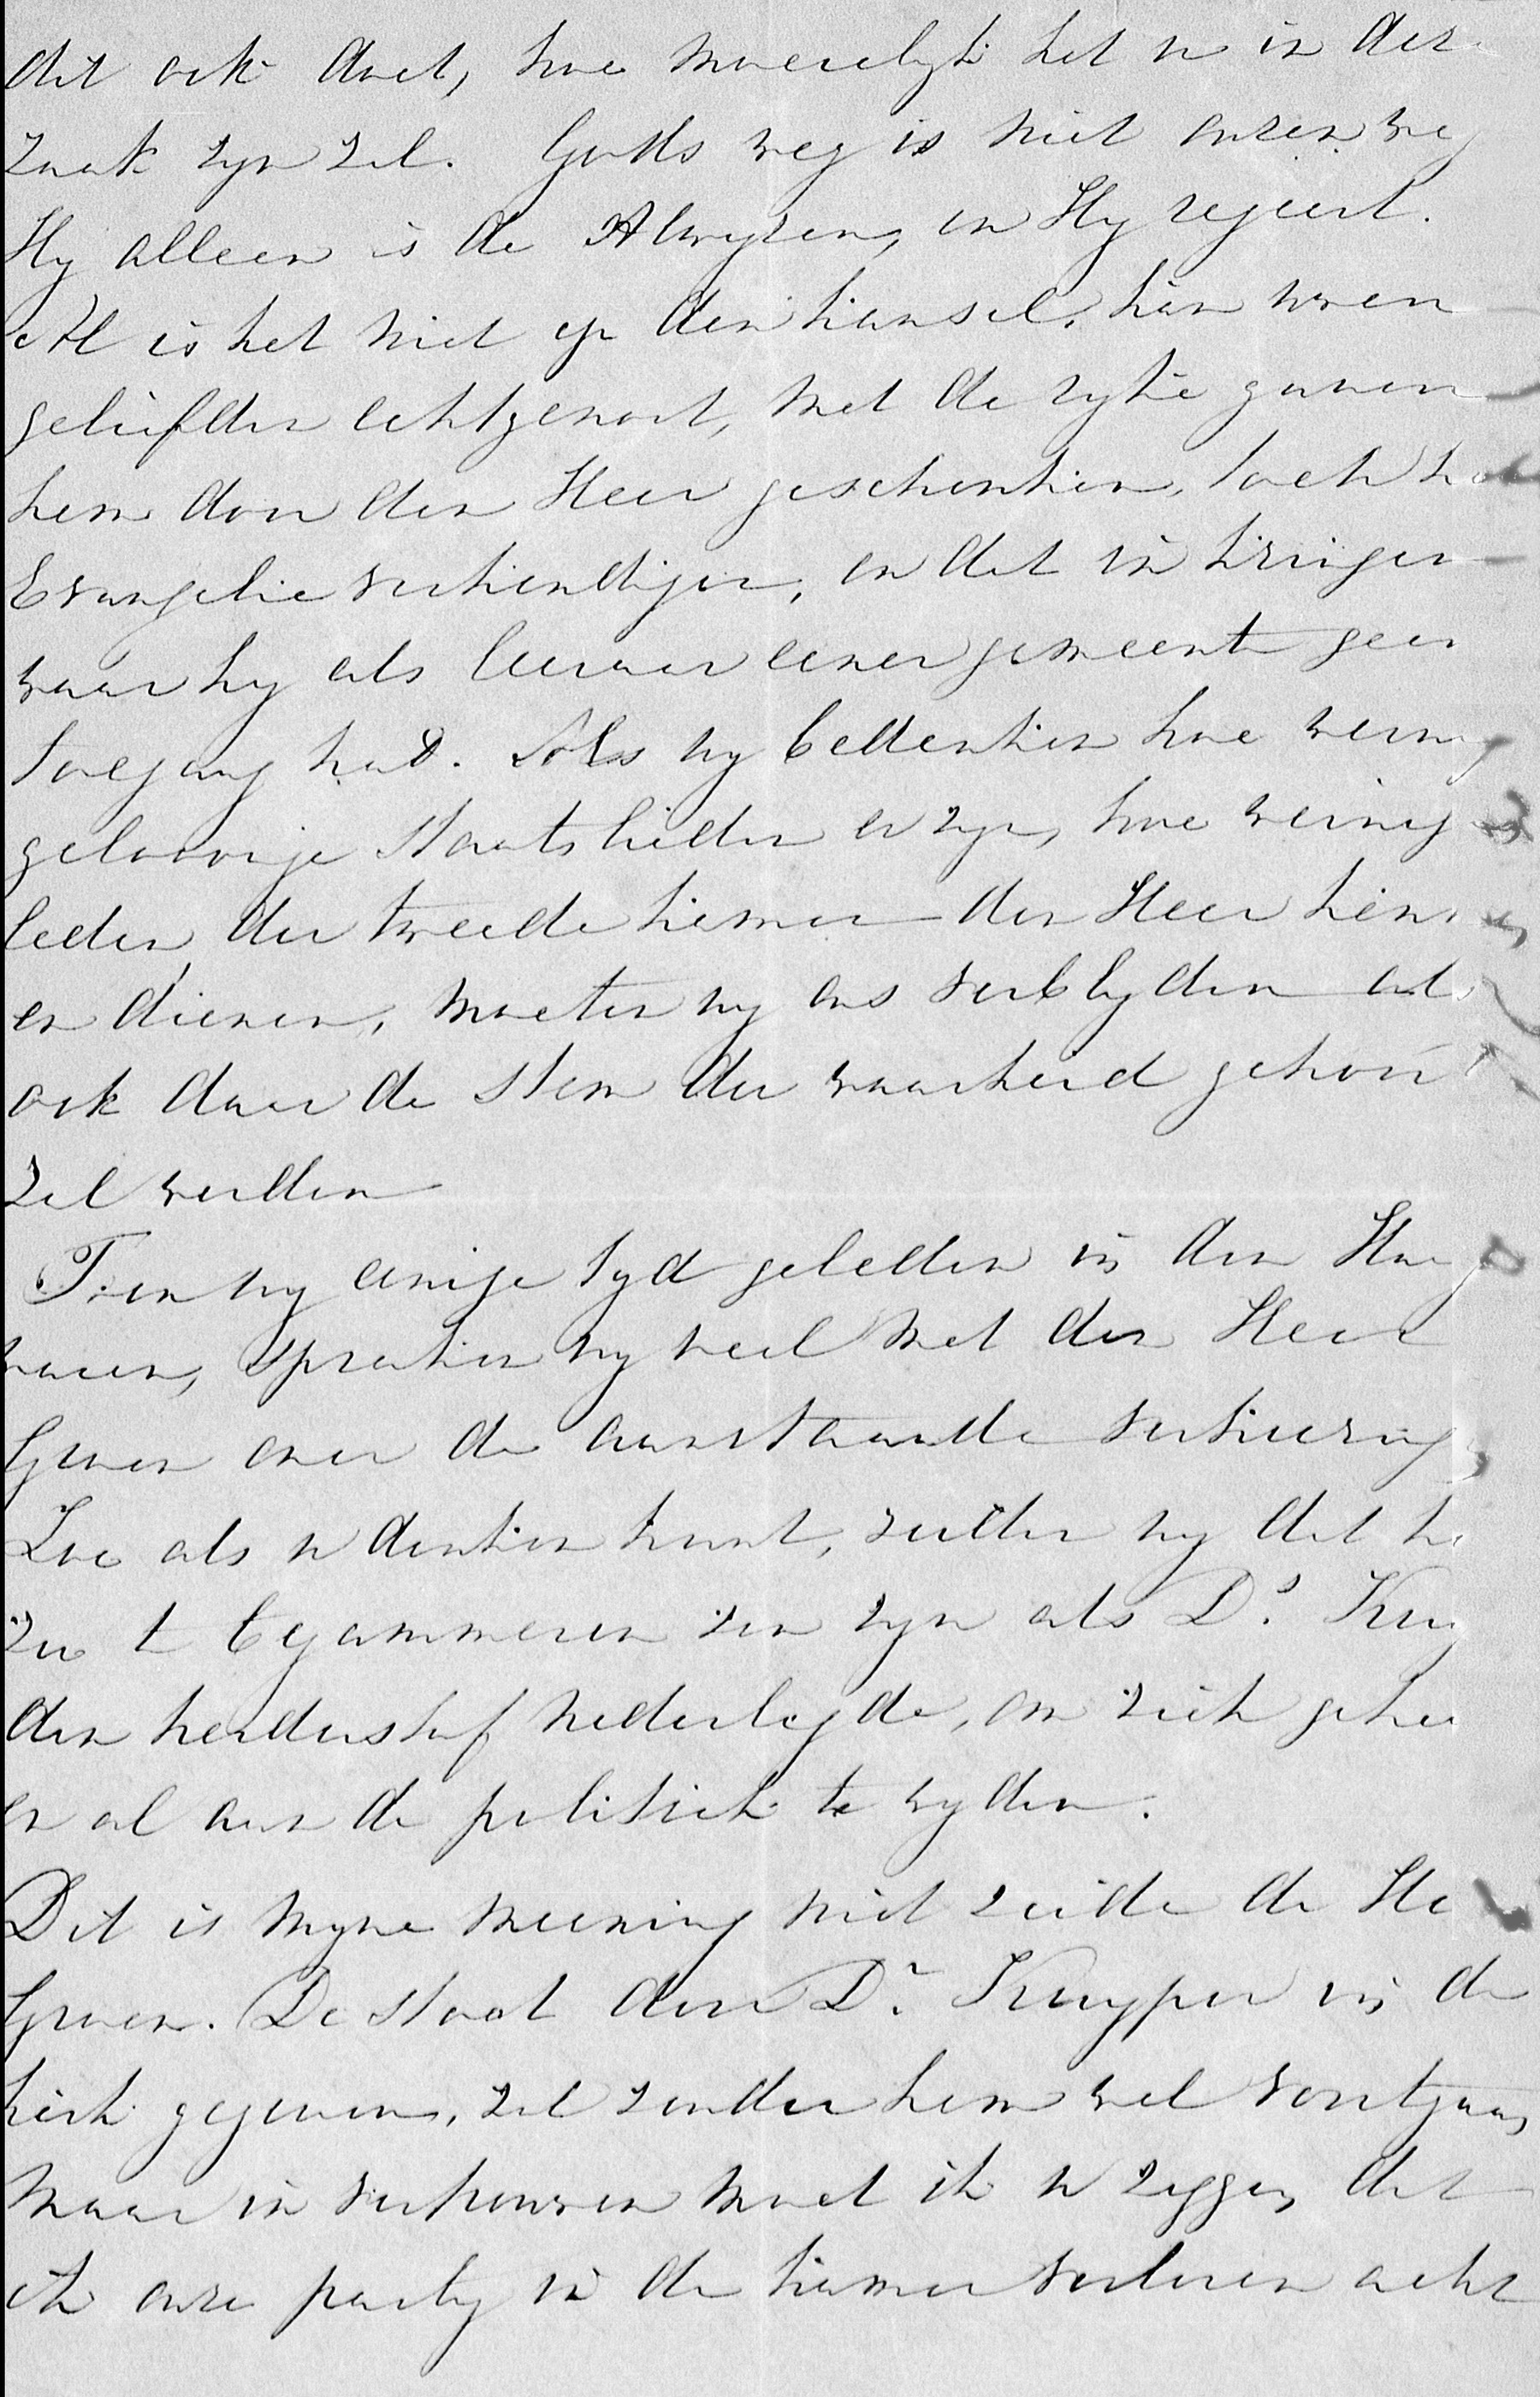 dit ook doet, hoe moeielyk het u in deze
zaak zyn zal. Gods weg is niet onzen weg
Hy alleen is de Alwyzen, en Hy regeert.
Al is het niet op den kansel, kan uwen
geliefden echtgenoot, met de ryke gaven
hem door den Heer geschonken, toch het
Evangelie verkondigen, en dat in kringen
waar hy als leeraar eener gemeente geen
toegang had. Als wy bedenken hoe weinig
geloovige staatslieden er zyn, hoe weinig
leden der tweede kamer den Heer kennen
en dienen, moeten wy ons verblyden als
ook daar de stem der waarheid gehoord
zal worden
Toen wy eenige tyd geleden in den Haag
waren, spraken wy veel met den Heer
Groen over de aanstaande verkiezing
Zoo als u denken kunt, zeiden wy dat het
zoo te bejammeren zou zyn als Ds. Kuy
den herdersstaf nederlegde, om zich geheel
en al aan de politiek te wyden.
Dit is myne meening niet zeide de Heer
Groen. De stoot door Dr. Kuyper in de
kerk gegeven, zal zonder hem wel voortgaan,
maar in vertrouwen moet ik u zeggen dat
ik onze party in de kamer verloren acht